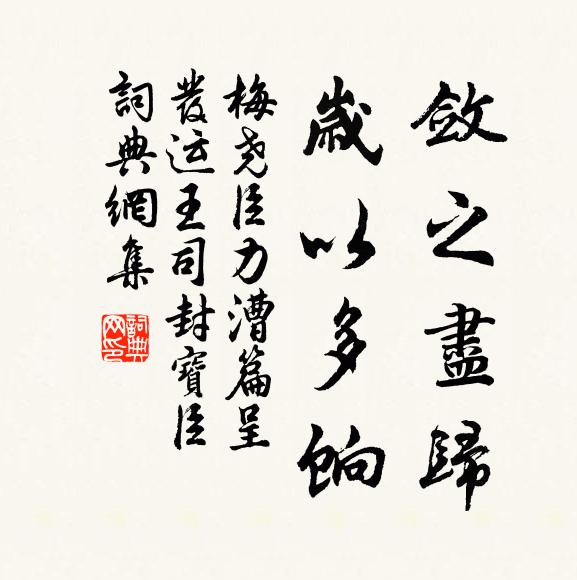 斂之盡歸
歲以多餉
梅尧臣力漕篇呈
發运王司封寶臣
詞典網集
詞典网印